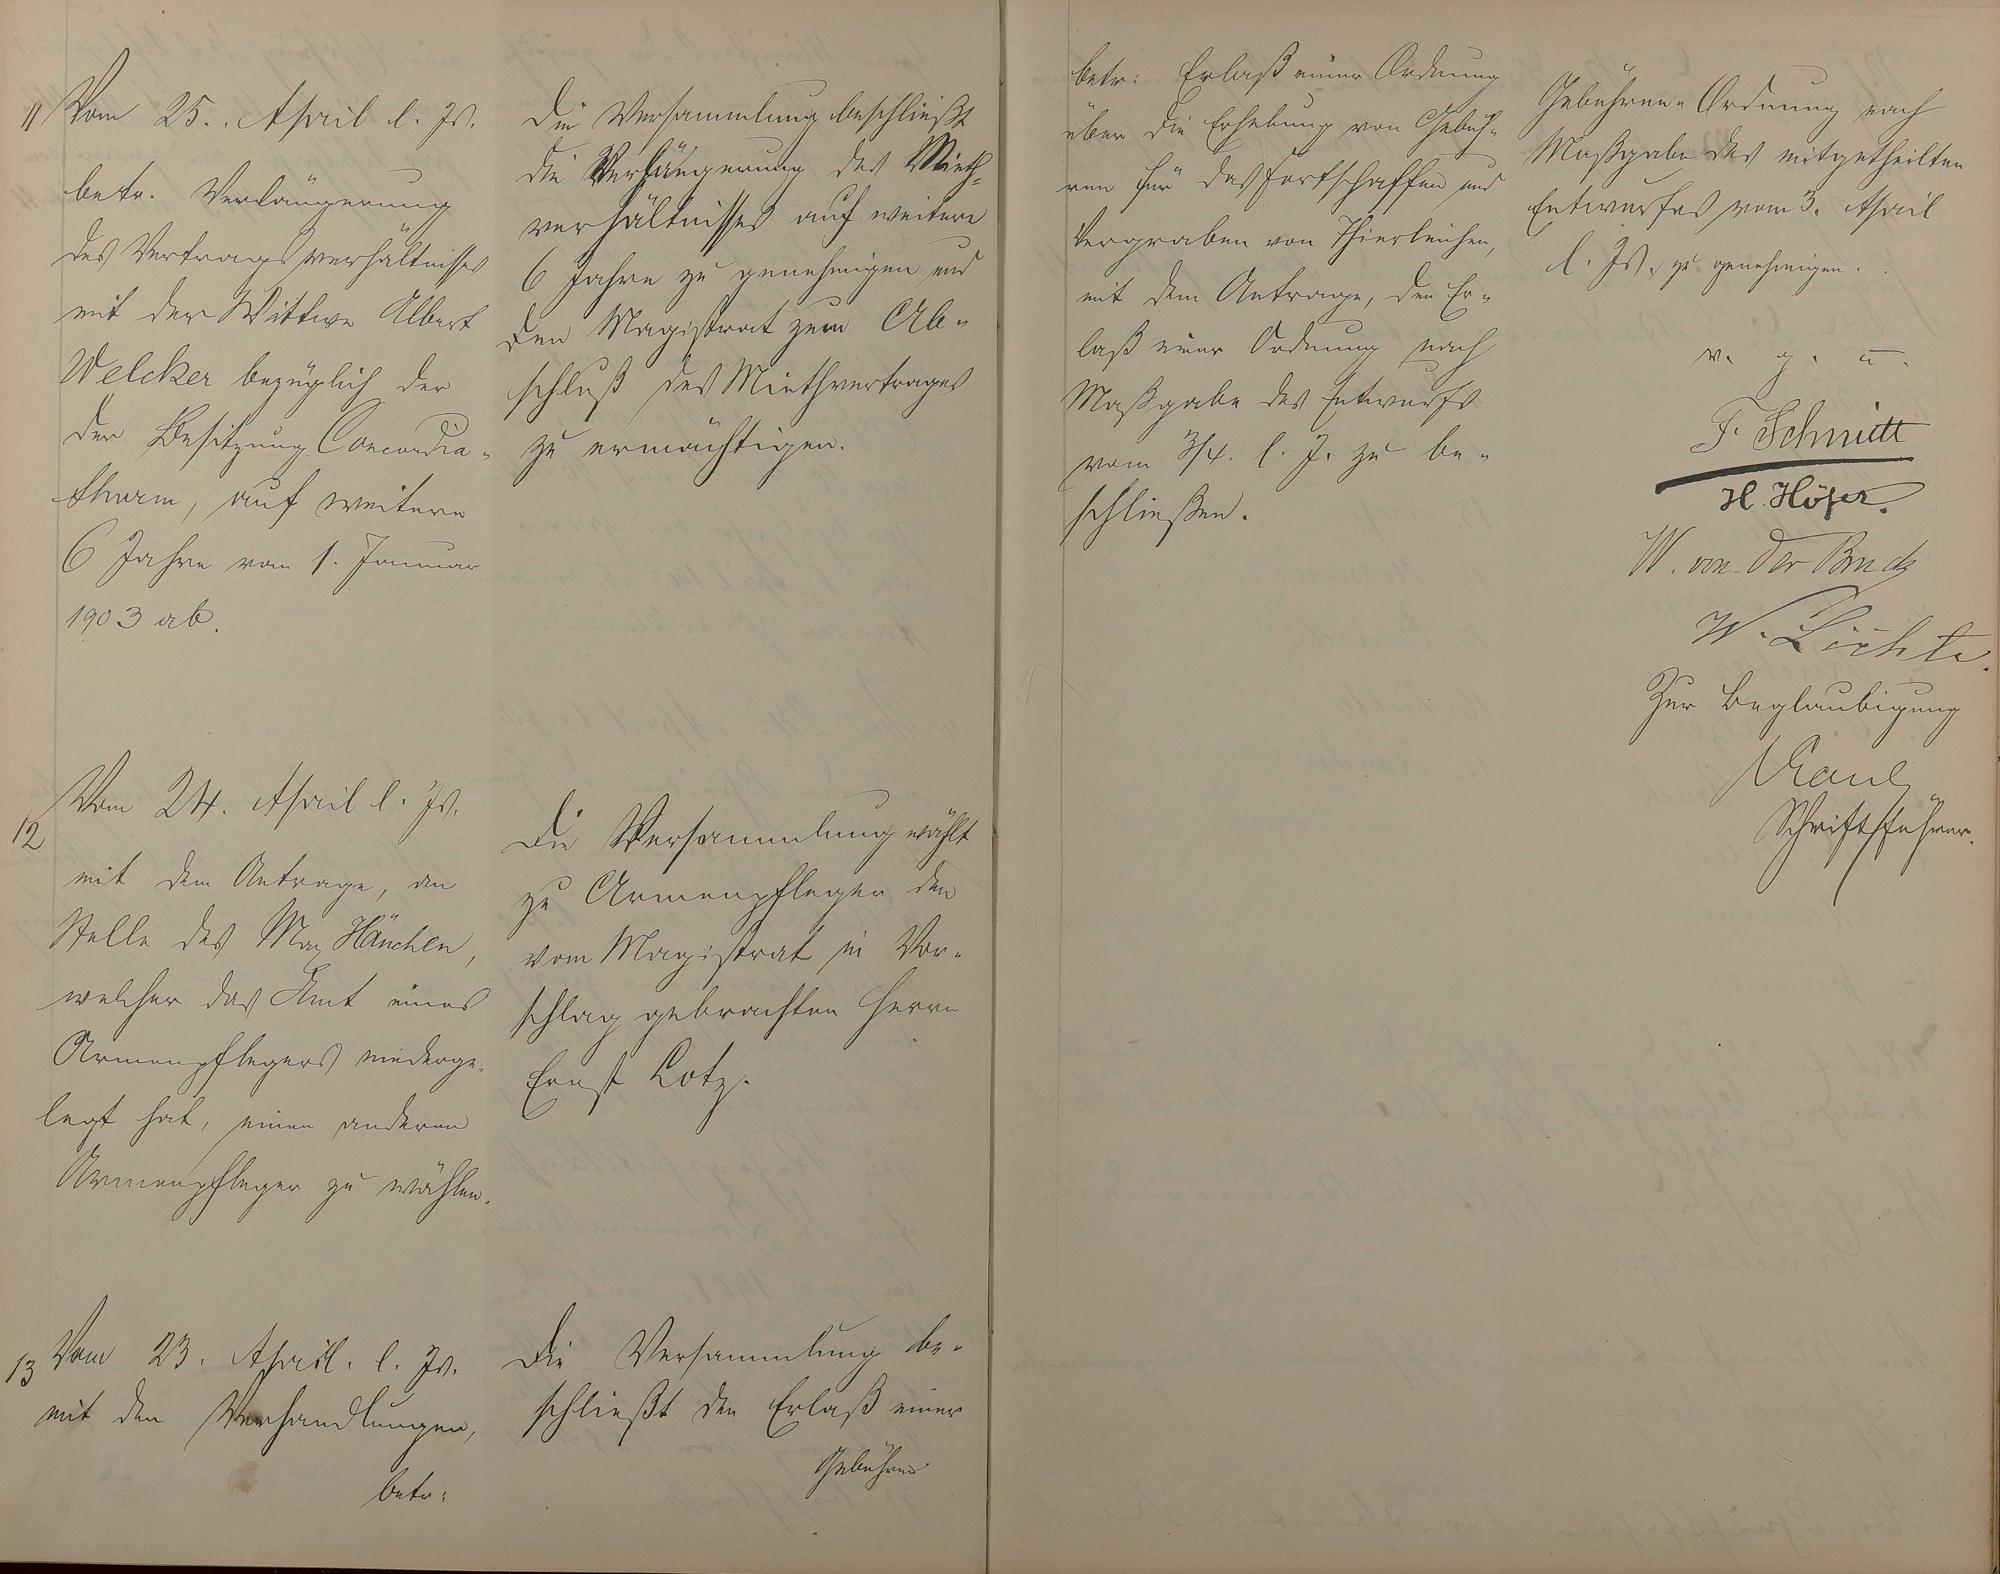 11 Vom 25. April l. Js.
betr. Verlängerung
des Vertragsverhältnisses
mit der Wittwe Albert
Welcker bezüglich der
der Besitzung Concordia-
thurm, auf weitere
6 Jahre vom 1. Januar
1903 ab.
Die Versammlung beschließt
die Verlängerung des Mieth-
verhältnisses auf weitere
6 Jahre zu genehmigen und
den Magistrat zum Ab-
schluß des Miethvertrages
zu ermächtigen.
12 Vom 24. April l. Js.
mit dem Antrage, an
Stelle des Max Hänchen,
welcher das Amt eines
Armenpflegers niederge-
legt hat, einen anderen
Armenpfleger zu wählen.
Die Versammlung wählt
zu Armenpfleger den
vom Magistrat in Vor-
schlag gebrachten Herrn
Ernst Lotz.
13 Vom 23. April. l. Js.
mit den Verhandlungen,
betr:
Die Versammlung be-
schließt den Erlaß einer
Gebühren
betr: Erlaß einer Ordnung
über die Erhebung von Gebüh-
ren für das Fortschaffen und
Vergraben von Thierleichen,
mit dem Antrage, den Er-
laß einer Ordnung nach
Maßgabe des Entwurfs
vom 3/4. l. J. zu be-
schließen.
Gebühren-Ordnung nach
Maßgabe des mitgetheilten
Entwurfes vom 3. April
l. Js. zu genehmigen.
v. g. u.
F. Schmitt
H. Höfer.
W. von der Bruck
W. Lüchte.
Zur Beglaubigung
Schriftführer.